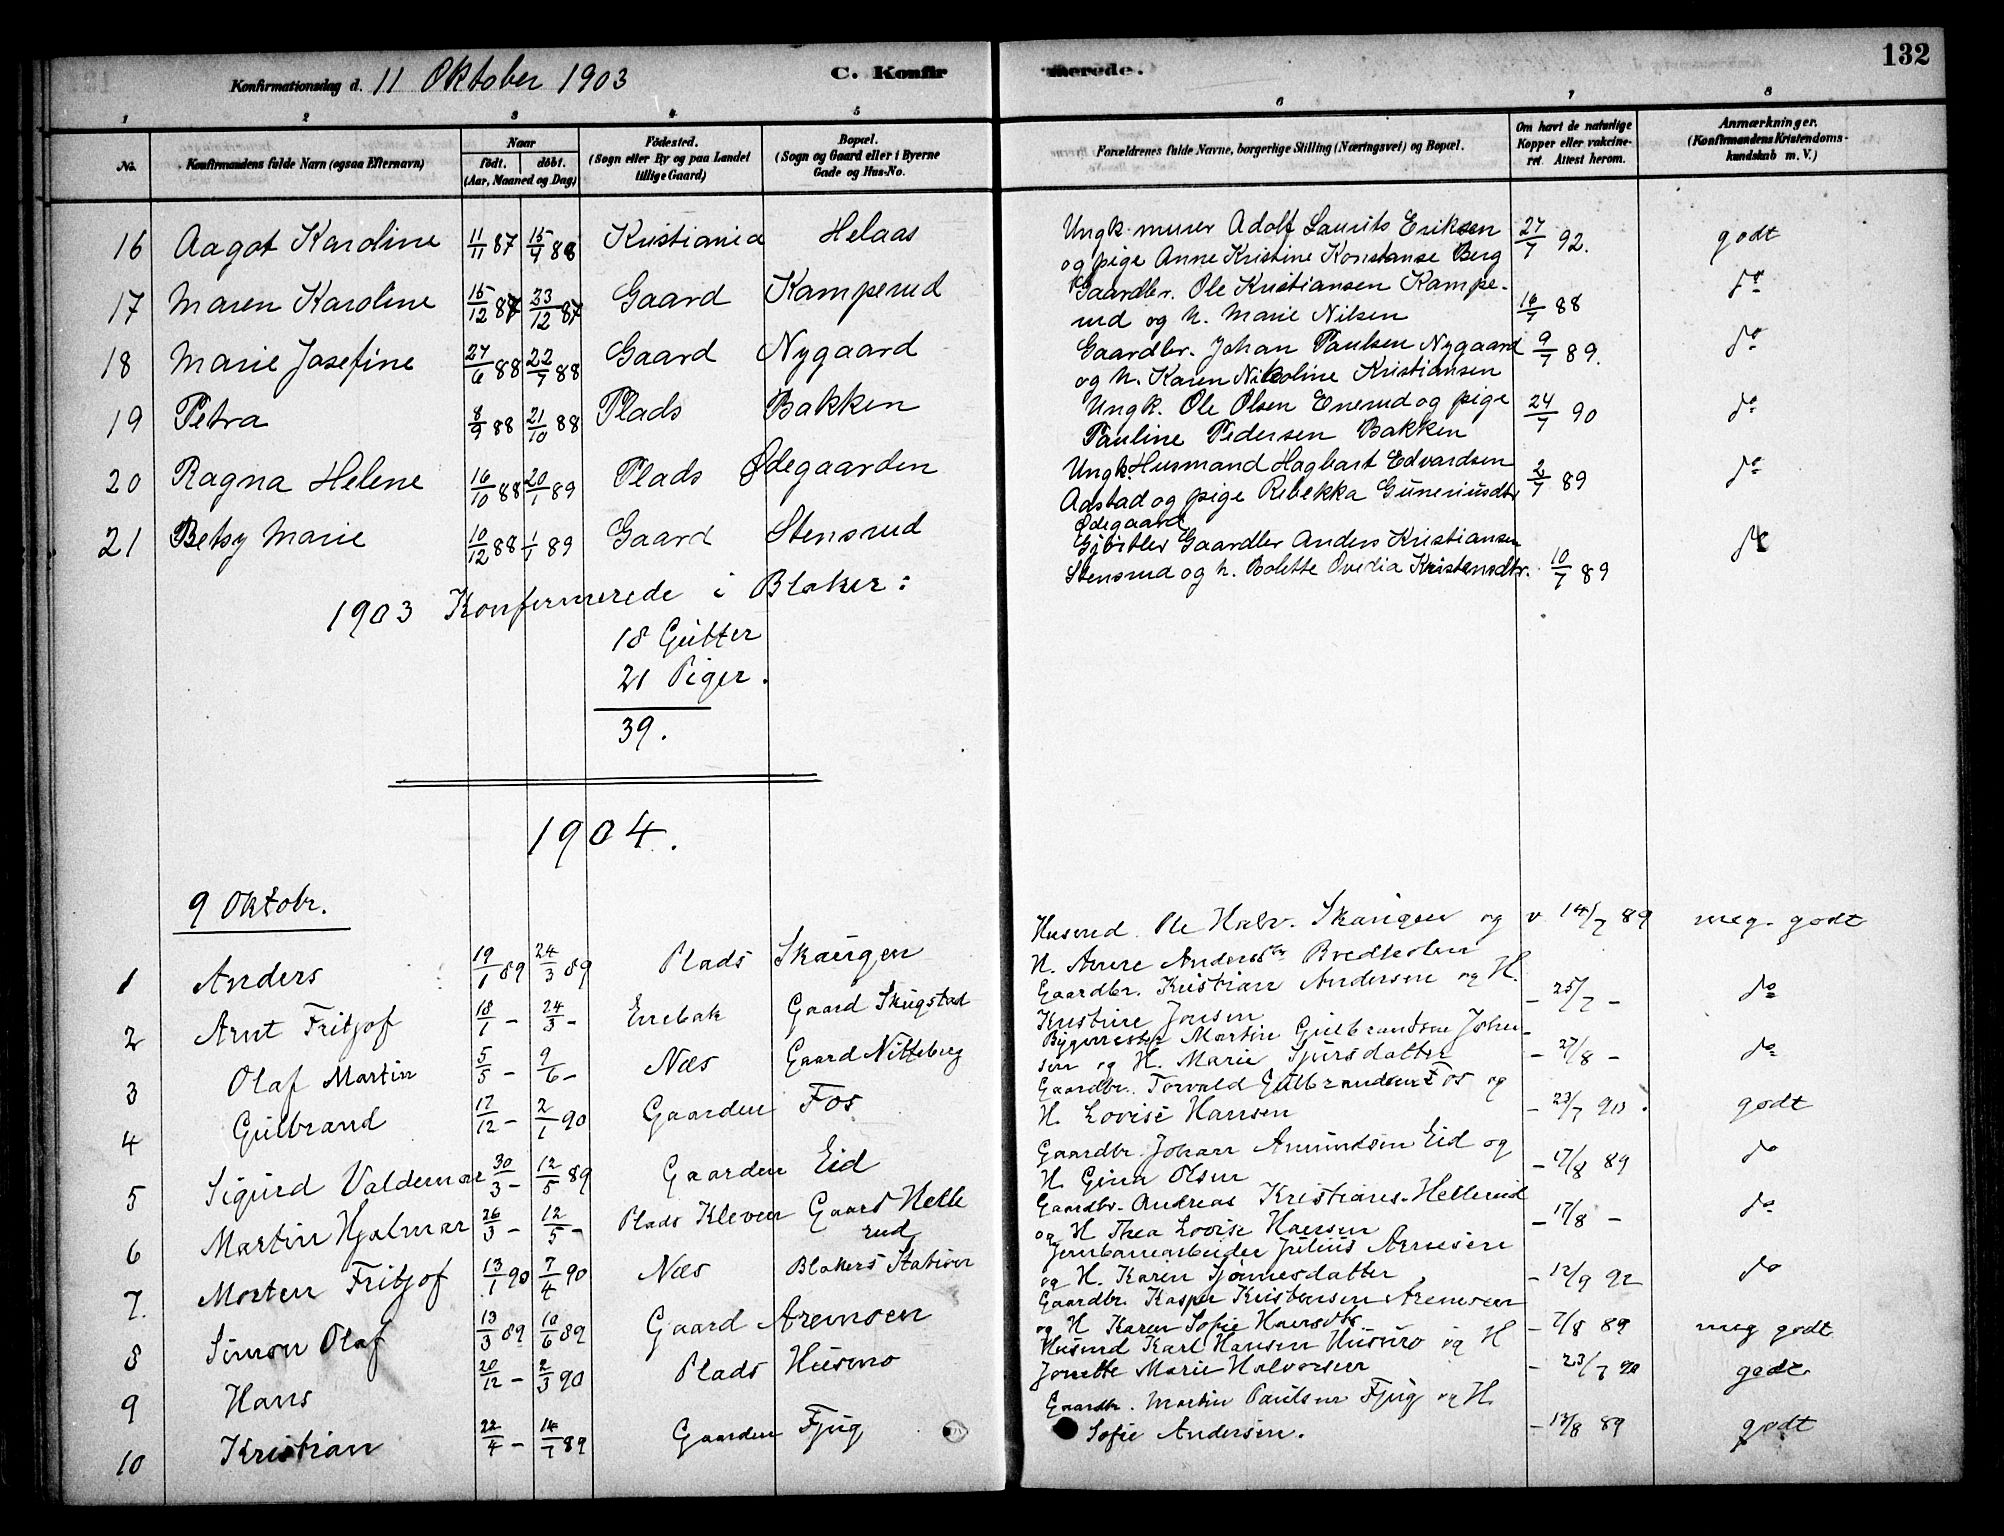 132
Konfirmationsdag d. 11 Oktober 1903 C. Konfirmerede.
1 2 3 4 5 6 7 8
No. Konfirmandens fulde Navn (ogsaa Efternavn) Naar født. døbt. (Aar, Maaned og Dag) Fødested. (Sogn eller By og paa Landet tillige Gaard) Bopæl. (Sogn og Gaard eller i Byerne Gade og Hus-No. Forældrenes fulde Navne, borgerlige Stilling (Næringsvei) og Bopæl. Om havt de naturlige Kopper eller vakcineret. Attest herom. Anmærkninger. (Konfirmandens Kristendomskundskab m. V.)
16 Aagot Karoline 11/11 87 15/4 88 Kristiania Helaas Ungk. murer Adolf Laurits Eriksen 27/7 92. godt
og pige Anne Kristine Konstanse Berg
17 Maren Karoline 15/12 87 23/12 87 Gaard Kamperud Gaardbr. Ole Kristiansen Kampe- 16/7 88 do
rud og h. Marie Nilsen
18 Marie Josefine 27/6 88 22/7 88 Gaard Nygaard Gaardbr. Johan Paulsen Nygaard 9/7 89. do
og h. Karen Nikoline Kristiansen
19 Petra 8/9 88 21/10 88 Plads Bakken Ungk. Ole Olsen Enerud og pige 24/7 90 do
Pauline Pedersen Bakken
20 Ragna Helene 16/10 88 20/1 89 Plads Ødegaarden Ungk. Husmand Hagbart Edvardsen 2/7 89 do
Aastad og pige Rebekka Guneriusdtr
Ødegaard
21 Betsy Marie 10/12 88 1/1 89 Gaard Stensrud Gaardbr Anders Kristiansen do
Stensrud og h. Bolette Ovidia Kristensdtr. 10/7 89
1903 Konfirmerede i Blaker:
18 Gutter
21 Piger.
39.
1904.
9 Oktobr.
1 Anders 19/1 89 24/3 89 Plads Skaugen Husmd. Ole Halv. Skaugen og v 14/7 89 meg. godt
H. Anne Andersdtr Bredholen
2 Arnt Fritjof 18/1 - 24/3 - Enebak Gaard Skugstad Gaardbr. Kristian Andersen og H. - 25/7 - do
Kristine Jonsen
3 Olaf Martin 5/5 - 9/6 - Næs Gaard Nitteberg Bygmester Martin Gulbrandsen Johan- - 27/8 - do
sen og H. Marie Sjursdatter
4 Gulbrand 17/12 - 2/1 90 Gaarden Fos Gaardbr. Torvald Gulbrandsen Fos og - 23/7 90. godt
H. Lovise Hansen
5 Sigurd Valdemar 30/3 - 12/5 89 Gaarden Eid Gaardbr. Johan Amundsen Eid og - 17/8 89 do
H. Gina Olsen
6 Martin Hjalmar 26/3 - 12/5 - Plads Kleven Gaard Helle Gaardbr. Andreas Kristians. Hellerud - 17/8 - do
rud og H Thea Lovise Hansen
7. Morten Fritjof 13/1 90 7/4 90 Næs Blakers Station Jernbanearbeider Julius Arnesen
og H. Karen Tjønnesdatter - 12/9 92 do
8 Simon Olaf 13/3 89 10/6 89 Gaard Aremoen Gaardbr. Kasper Kristensen Aremoen
og H Karen Sofie Hansdtr - 7/8 89 meg godt
9 Hans 20/12 - 2/3 90 Plads Husmo Husmd Karl Hansen Husmo og H
Jonette Marie Halvorsen - 23/7 90 godt
10 Kristian 22/4 - 14/7 89 Gaarden Fjug Gaardbr. Martin Paulsen Fjug og H.
Sofie Andersen. - 13/8 89 godt